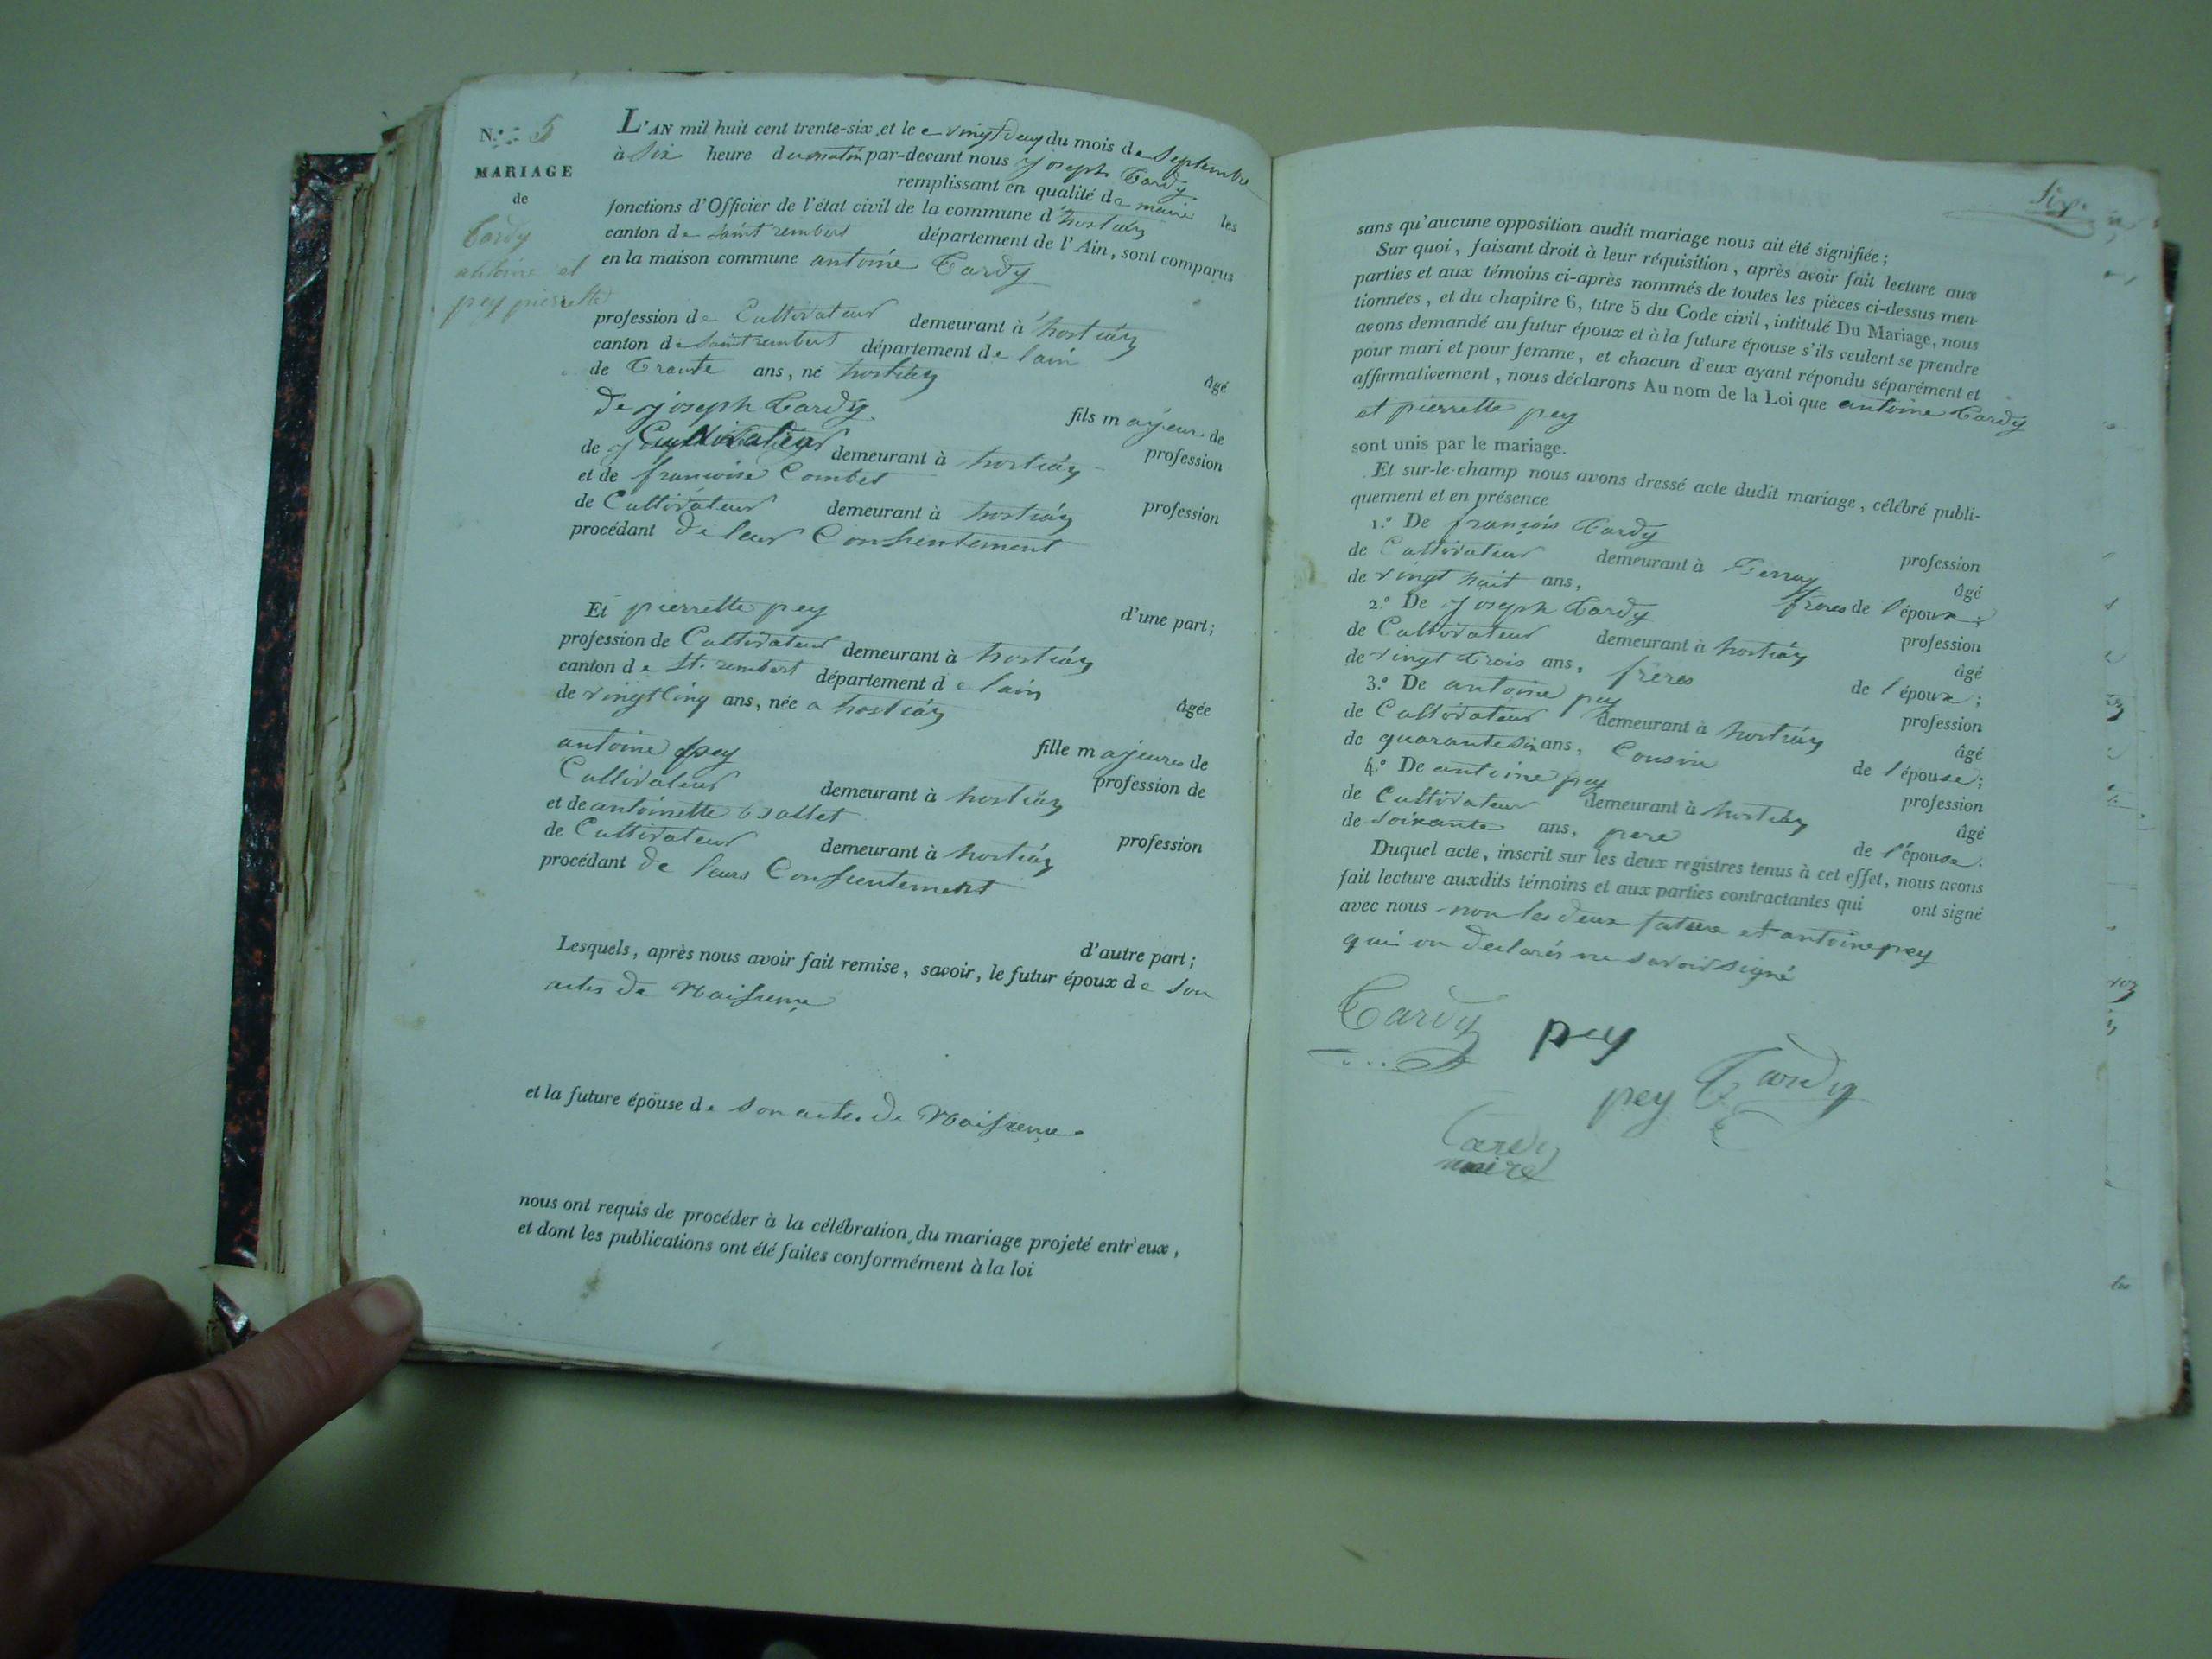 N.º 5
MARIAGE
de
Tardy
antoine et
pey pierrette
L'AN mil huit cent trente-six et le vingt deux du mois de Septembre
à Six heure du matin par-devant nous joseph Tardy
remplissant en qualité de maire les
fonctions d'Officier de l'état civil de la commune d'hostiaz
canton de saint rembert département de l'Ain, sont comparus
en la maison commune antoine Tardy
profession de Cultivateur demeurant à hostiaz
canton de Saint rembert département de lain
âgé
de Trante ans, né hostiaz
fils majeur de
de joseph Tardy profession
de Cultivateur demeurant à hostiaz
et de francoise Combet profession
de Cultivateur demeurant à hostiaz
procédant de leur Consientement
d'une part;
Et pierrette pey
profession de Cultivateur demeurant à hostiaz
canton de St. rembert département de lain
âgée
de vingt cinq ans, née a hostiaz
fille majeures de
antoine pey profession de
Cultivateur demeurant à hostiaz
et de antoinette profession
de Cultivateur demeurant à hostiaz
procédant de leurs Consientement
d'autre part;
Lesquels, après nous avoir fait remise, savoir, le futur époux de son
actes de Naissence
et la future épouse de son actes de Naissence
nous ont requis de procéder à la célébration du mariage projeté entr'eux,
et dont les publications ont été faites conformément à la loi
Six
sans qu'aucune opposition audit mariage nous ait été signifiée;
Sur quoi, faisant droit à leur réquisition, après avoir fait lecture aux
parties et aux témoins ci-après nommés de toutes les pièces ci-dessus men-
tionnées, et du chapitre 6, titre 5 du Code civil, intitulé Du Mariage, nous
avons demandé au futur époux et à la future épouse s'ils veulent se prendre
pour mari et pour femme, et chacun d'eux ayant répondu séparément et
affirmativement, nous déclarons Au nom de la Loi que antoine Tardy
et pierrette pey
sont unis par le mariage.
Et sur-le-champ nous avons dressé acte dudit mariage, célébré publi-
quement et en présence
1.º De françois Tardy profession
de Cultivateur demeurant à âgé
de vingt huit ans, freres de l'époux;
2.º De joseph Tardy profession
de Cultivateur demeurant à hostiaz âgé
de vingt trois ans, freres de l'époux;
3.º De antoine pey profession
de Cultivateur demeurant à hostiaz âgé
de quarante six ans, Cousin de l'épouse;
4.º De antoine pey profession
de Cultivateur demeurant à hostiaz âgé
de soixante ans, pere de l'épouse.
Duquel acte, inscrit sur les deux registres tenus à cet effet, nous avons
fait lecture auxdits témoins et aux parties contractantes qui ont signé
avec nous non les deux future et antoine pey
qui on declarés ne savoir signé
Tardy pey
pey Tardy
Tardy
maire